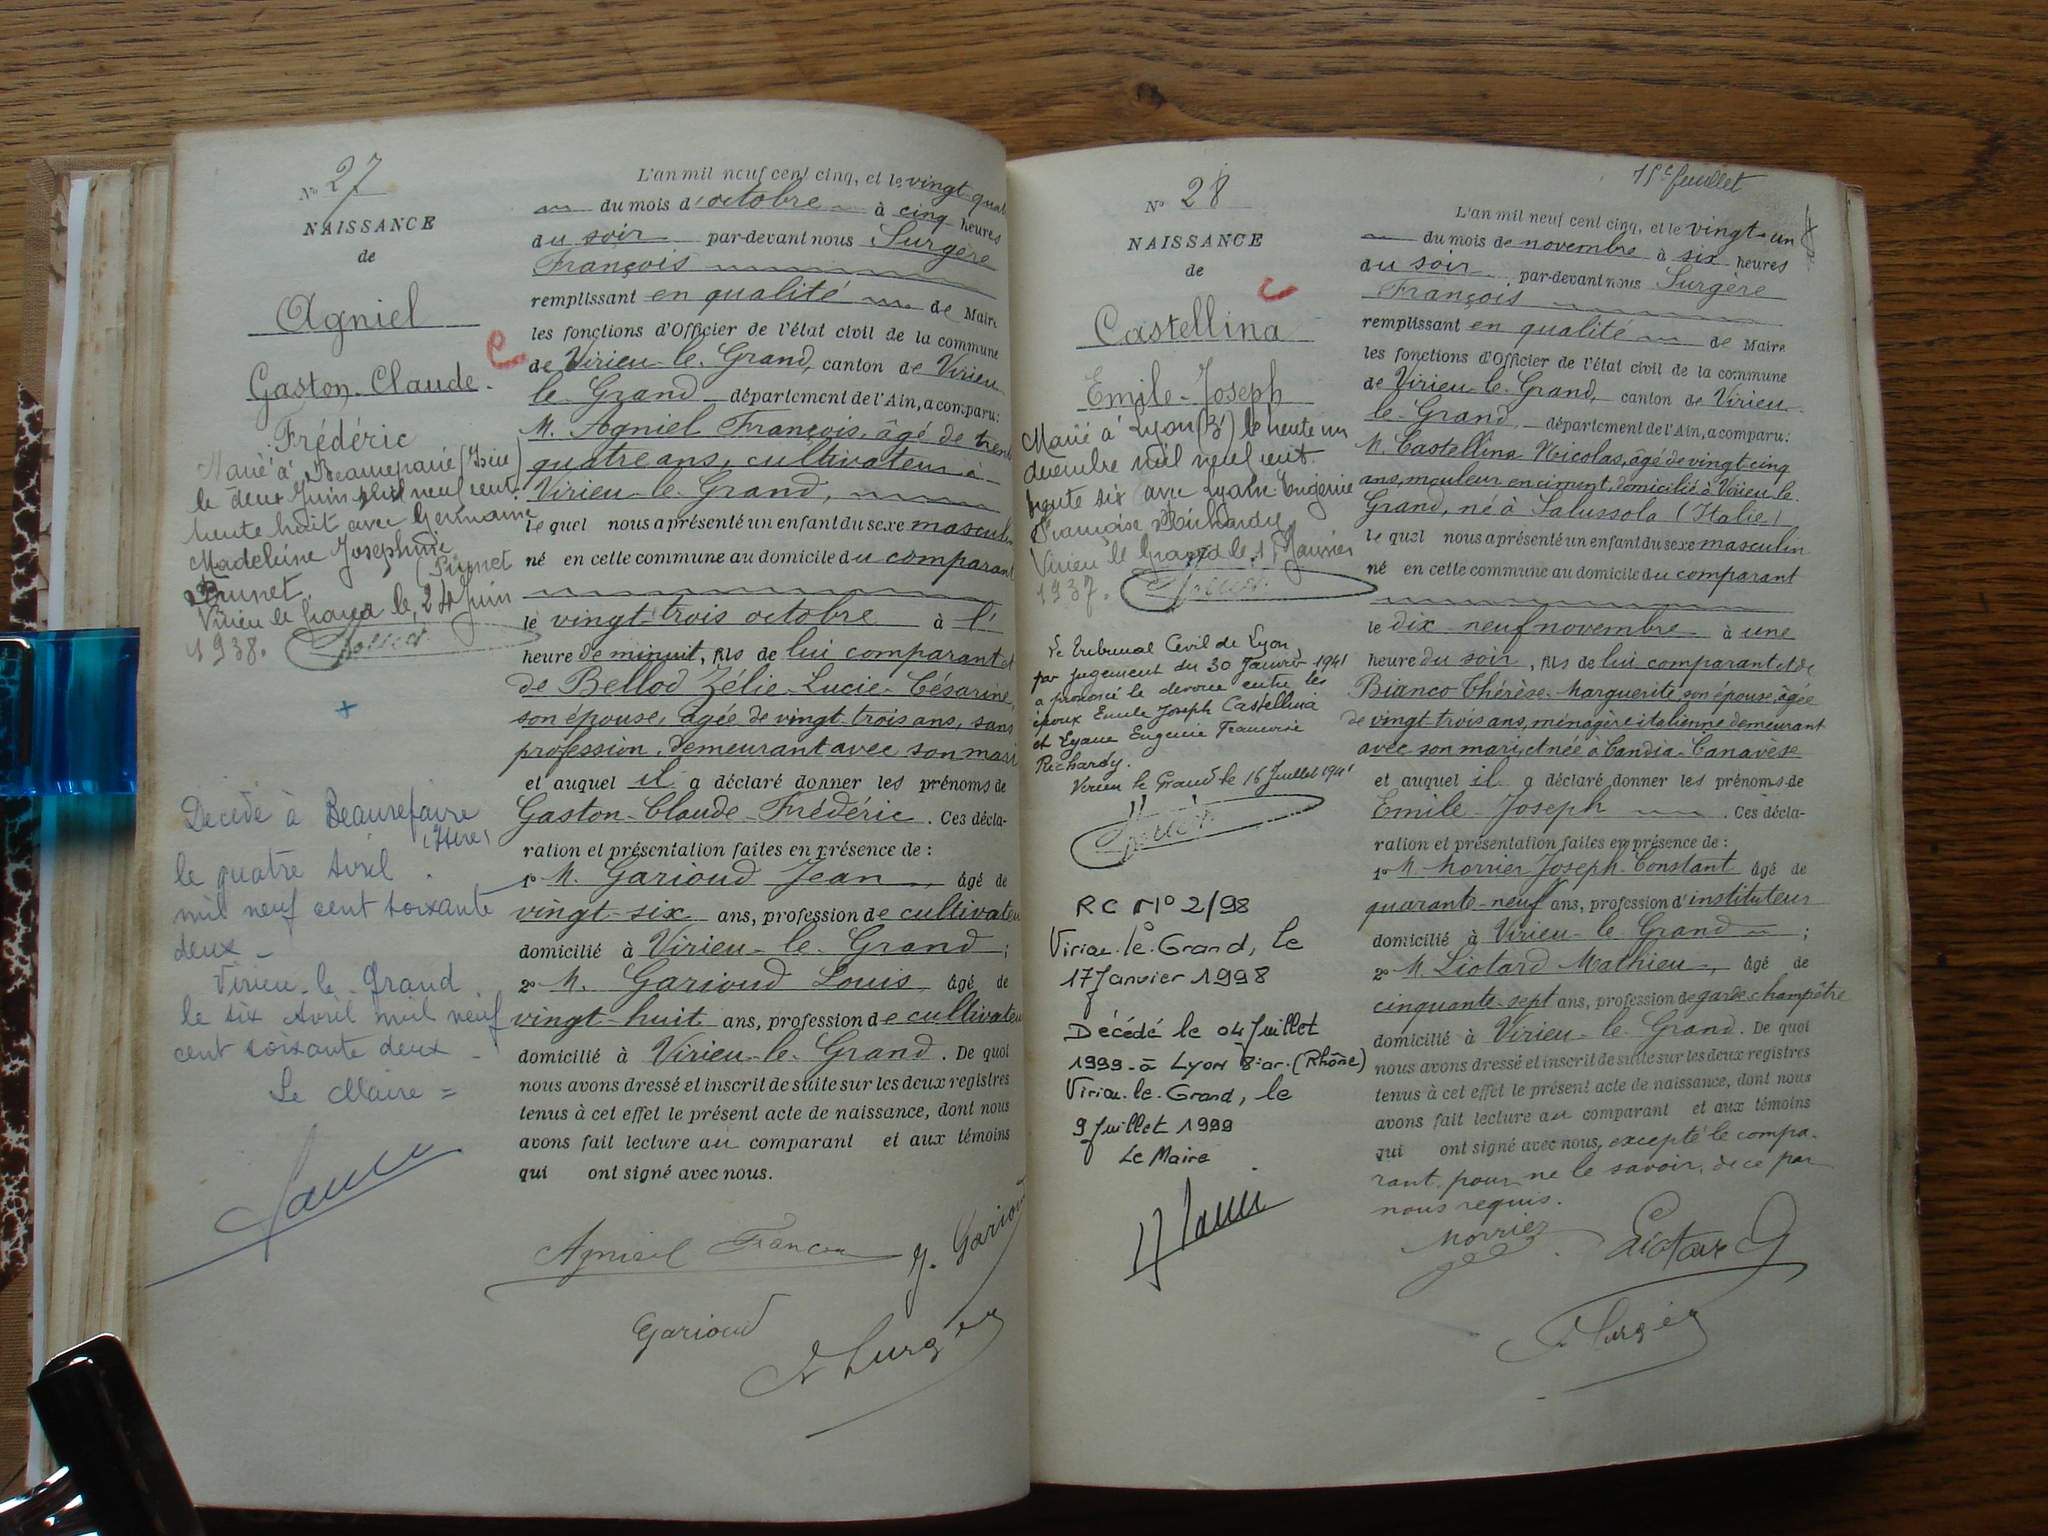 Nº 27
NAISSANCE
de
Agniel
Gaston-Claude-
Frédéric
Marié à Beaurepaire (Isère)
le deux Juin mil neuf cent
trente huit avec Germaine
Madeleine Josephine
Brunet.
Virieu le Grand le 24 Juin
1938.
Décédé à Beaurepaire
(Isère)
le quatre Avril
mil neuf cent soixante
deux -
Virieu-le-Grand
le six Avril mil neuf
cent soixante deux -
Le Maire =
L'an mil neuf cent cinq, et le vingt-quatre
du mois d'octobre à cinq heures
du soir par-devant nous Surgère
François
remplissant en qualité de Maire
les fonctions d'Officier de l'état civil de la commune
de Virieu-le-Grand, canton de Virieu
le-Grand département de l'Ain, a comparu:
M. Agniel François, âgé de trente
quatre ans, cultivateur à
Virieu-le-Grand,
lequel nous a présenté un enfant du sexe masculin
né en cette commune au domicile du comparant
le vingt-trois octobre à l'
heure de minuit, fils de lui comparant et
de Bellod Zélie-Lucie-Césarine,
son épouse, âgée de vingt-trois ans, sans
profession, demeurant avec son mari
et auquel il a déclaré donner les prénoms de
Gaston-Claude-Frédéric. Ces décla-
ration et présentation faites en présence de :
1º M. Garioud Jean, âgé de
vingt-six ans, profession de cultivateur
domicilié à Virieu-le-Grand ;
2º M. Garioud Louis âgé de
vingt-huit ans, profession de cultivateur
domicilié à Virieu-le-Grand. De quoi
nous avons dressé et inscrit de suite sur les deux registres
tenus à cet effet le présent acte de naissance, dont nous
avons fait lecture au comparant et aux témoins
qui ont signé avec nous.
Agniel François J. Garioud
Garioud
F Surgère
15e feuillet
Nº 28
NAISSANCE
de
Castellina
Emile-Joseph
Marié à Lyon (3e) le trente un
décembre mil neuf cent
trente six avec Lyane Eugénie
Françoise Richardy
Virieu le Grand le 11 Janvier
1937.
Le Tribunal Civil de Lyon,
par jugement du 30 Janvier 1941
a prononcé le divorce entre les
époux Emile Joseph Castellina
et Lyane Eugenie Francoise
Richardy.
Virieu le Grand le 16 Juillet 1941
RC Nº 2/98
Virieu-le-Grand, le
17 Janvier 1998
Décédé le 04 Juillet
1999 - à Lyon 8e ar. (Rhône)
Virieu-le-Grand, le
9 Juillet 1999
Le Maire
L'an mil neuf cent cinq, et le vingt-un
du mois de novembre à six heures
du soir par-devant nous Surgère
François
remplissant en qualité de Maire
les fonctions d'Officier de l'état civil de la commune
de Virieu-le-Grand, canton de Virieu
le-Grand, département de l'Ain, a comparu:
M. Castellina Nicolas, âgé de vingt-cinq
ans, mouleur en ciment, domicilié à Virieu-le-
Grand, né à Salussola (Italie)
lequel nous a présenté un enfant du sexe masculin
né en cette commune au domicile du comparant
le dix-neuf novembre à une
heure du soir, fils de lui comparant et de
Bianco Thérèse-Marguerite son épouse, âgée
de vingt-trois ans, ménagère italienne demeurant
avec son mari, et née à Candia-Canavèse
et auquel il a déclaré donner les prénoms de
Emile-Joseph. Ces décla-
ration et présentation faites en présence de :
1º M. Morrier Joseph-Constant âgé de
quarante-neuf ans, profession d'instituteur
domicilié à Virieu-le-Grand ;
2º M. Liotard Mathieu, âgé de
cinquante-sept ans, profession de garde champêtre
domicilié à Virieu-le-Grand. De quoi
nous avons dressé et inscrit de suite sur les deux registres
tenus à cet effet le présent acte de naissance, dont nous
avons fait lecture au comparant et aux témoins
qui ont signé avec nous, excepté le compa-
rant pour ne le savoir, de ce par
nous requis.
Morrier Liotard
F Surgère